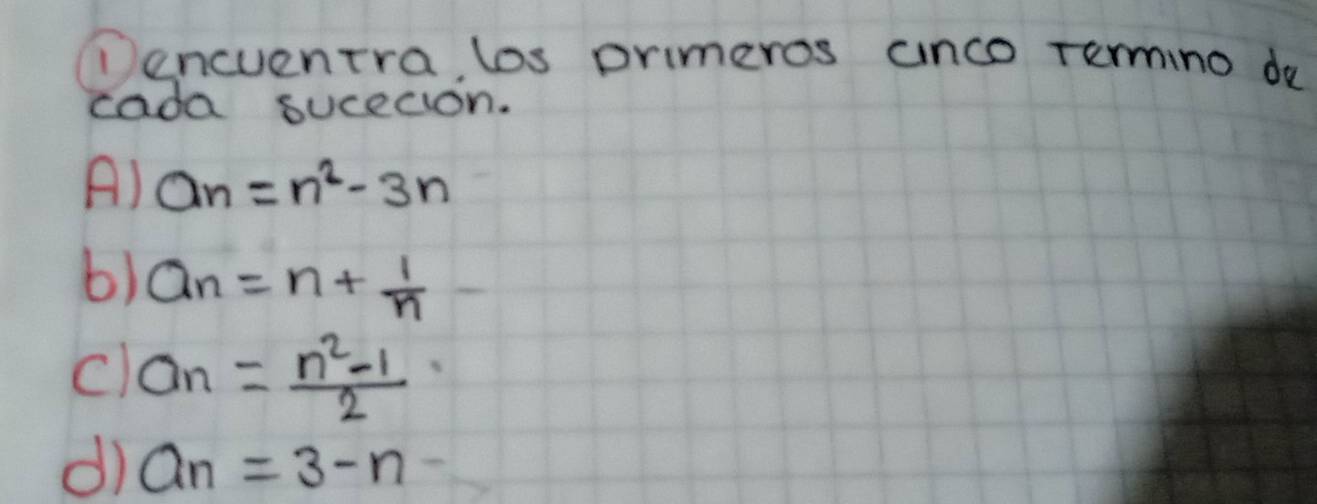 ① encuentra. los primeros cinco termino de
cada suceción.
A) an = n² - 3n
b) an = n + 1/n
c) an = n² - 1 / 2
d) an = 3 - n